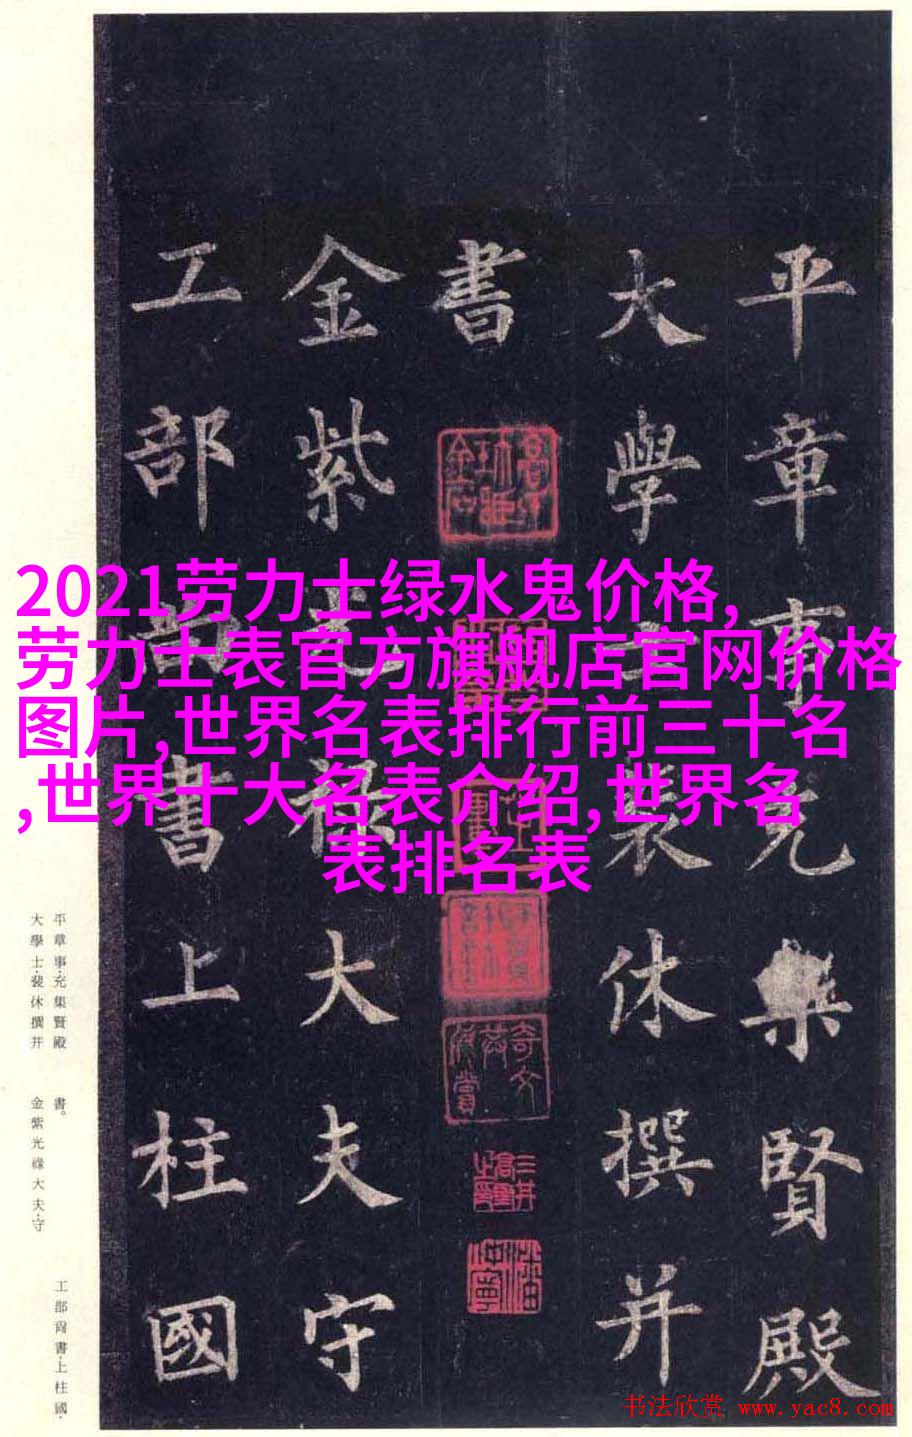 2021劳力士绿水鬼价格,
劳力士表官方旗舰店官网价格
图片,世界名表排行前三十名
,世界十大名表介绍,世界名
表排名表
平章事充集賢殿
大學士裴休撰并
書
金紫光祿大夫守
工部尚書上柱國
平章事·充集賢殿
大學士·裴休撰并
書。
金紫光祿大夫·守
工部尚書·上柱國·
书法欣赏 www.yac8.com